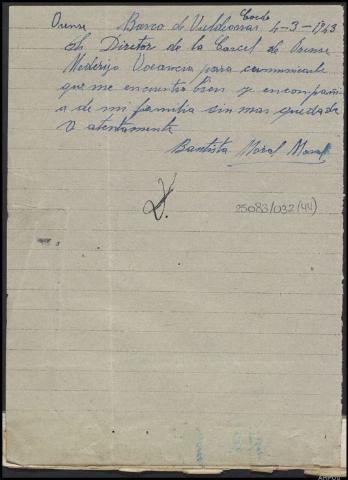 Orense Barco de Valdeorras 4-3-1943
Sr Diretor de la Carcel de Orense
Mederijo Vocancia para comunicarle
que me encuentro bien y encompañi
a de mi familia sin mas quedada
V atentamente
Bautista Moral Moral
V.
25083/032(44)